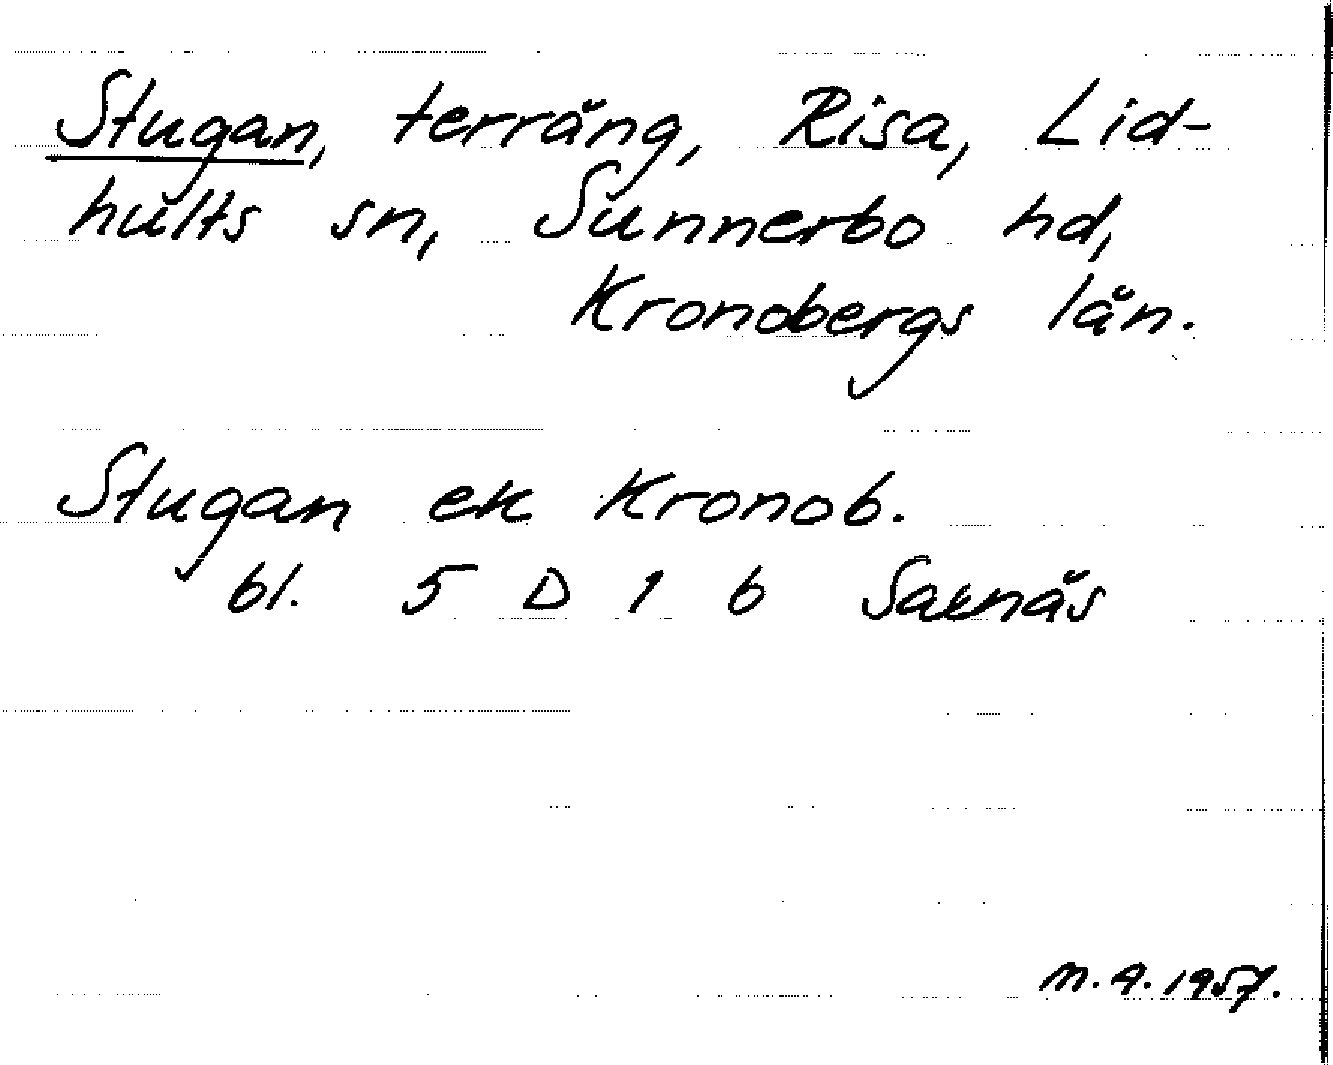 Stugan, terräng, Risa, Lid-
hults sn, Sunnerbo hd,
Kronobergs län.
Stugan ek Kronob.
bl. 5 D 1 b Saxnäs
M.A. 1957.